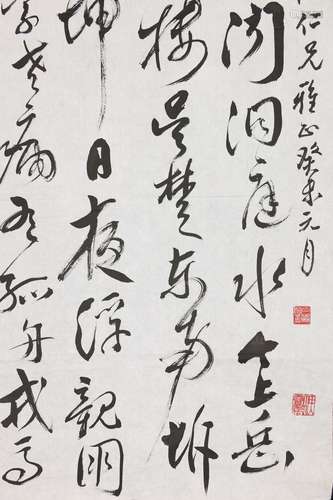 仁兄雅正癸未元月
闻洞庭水今上岳
楼吴楚东南坼
坤日夜浮親朋
字老病有孤舟戎马